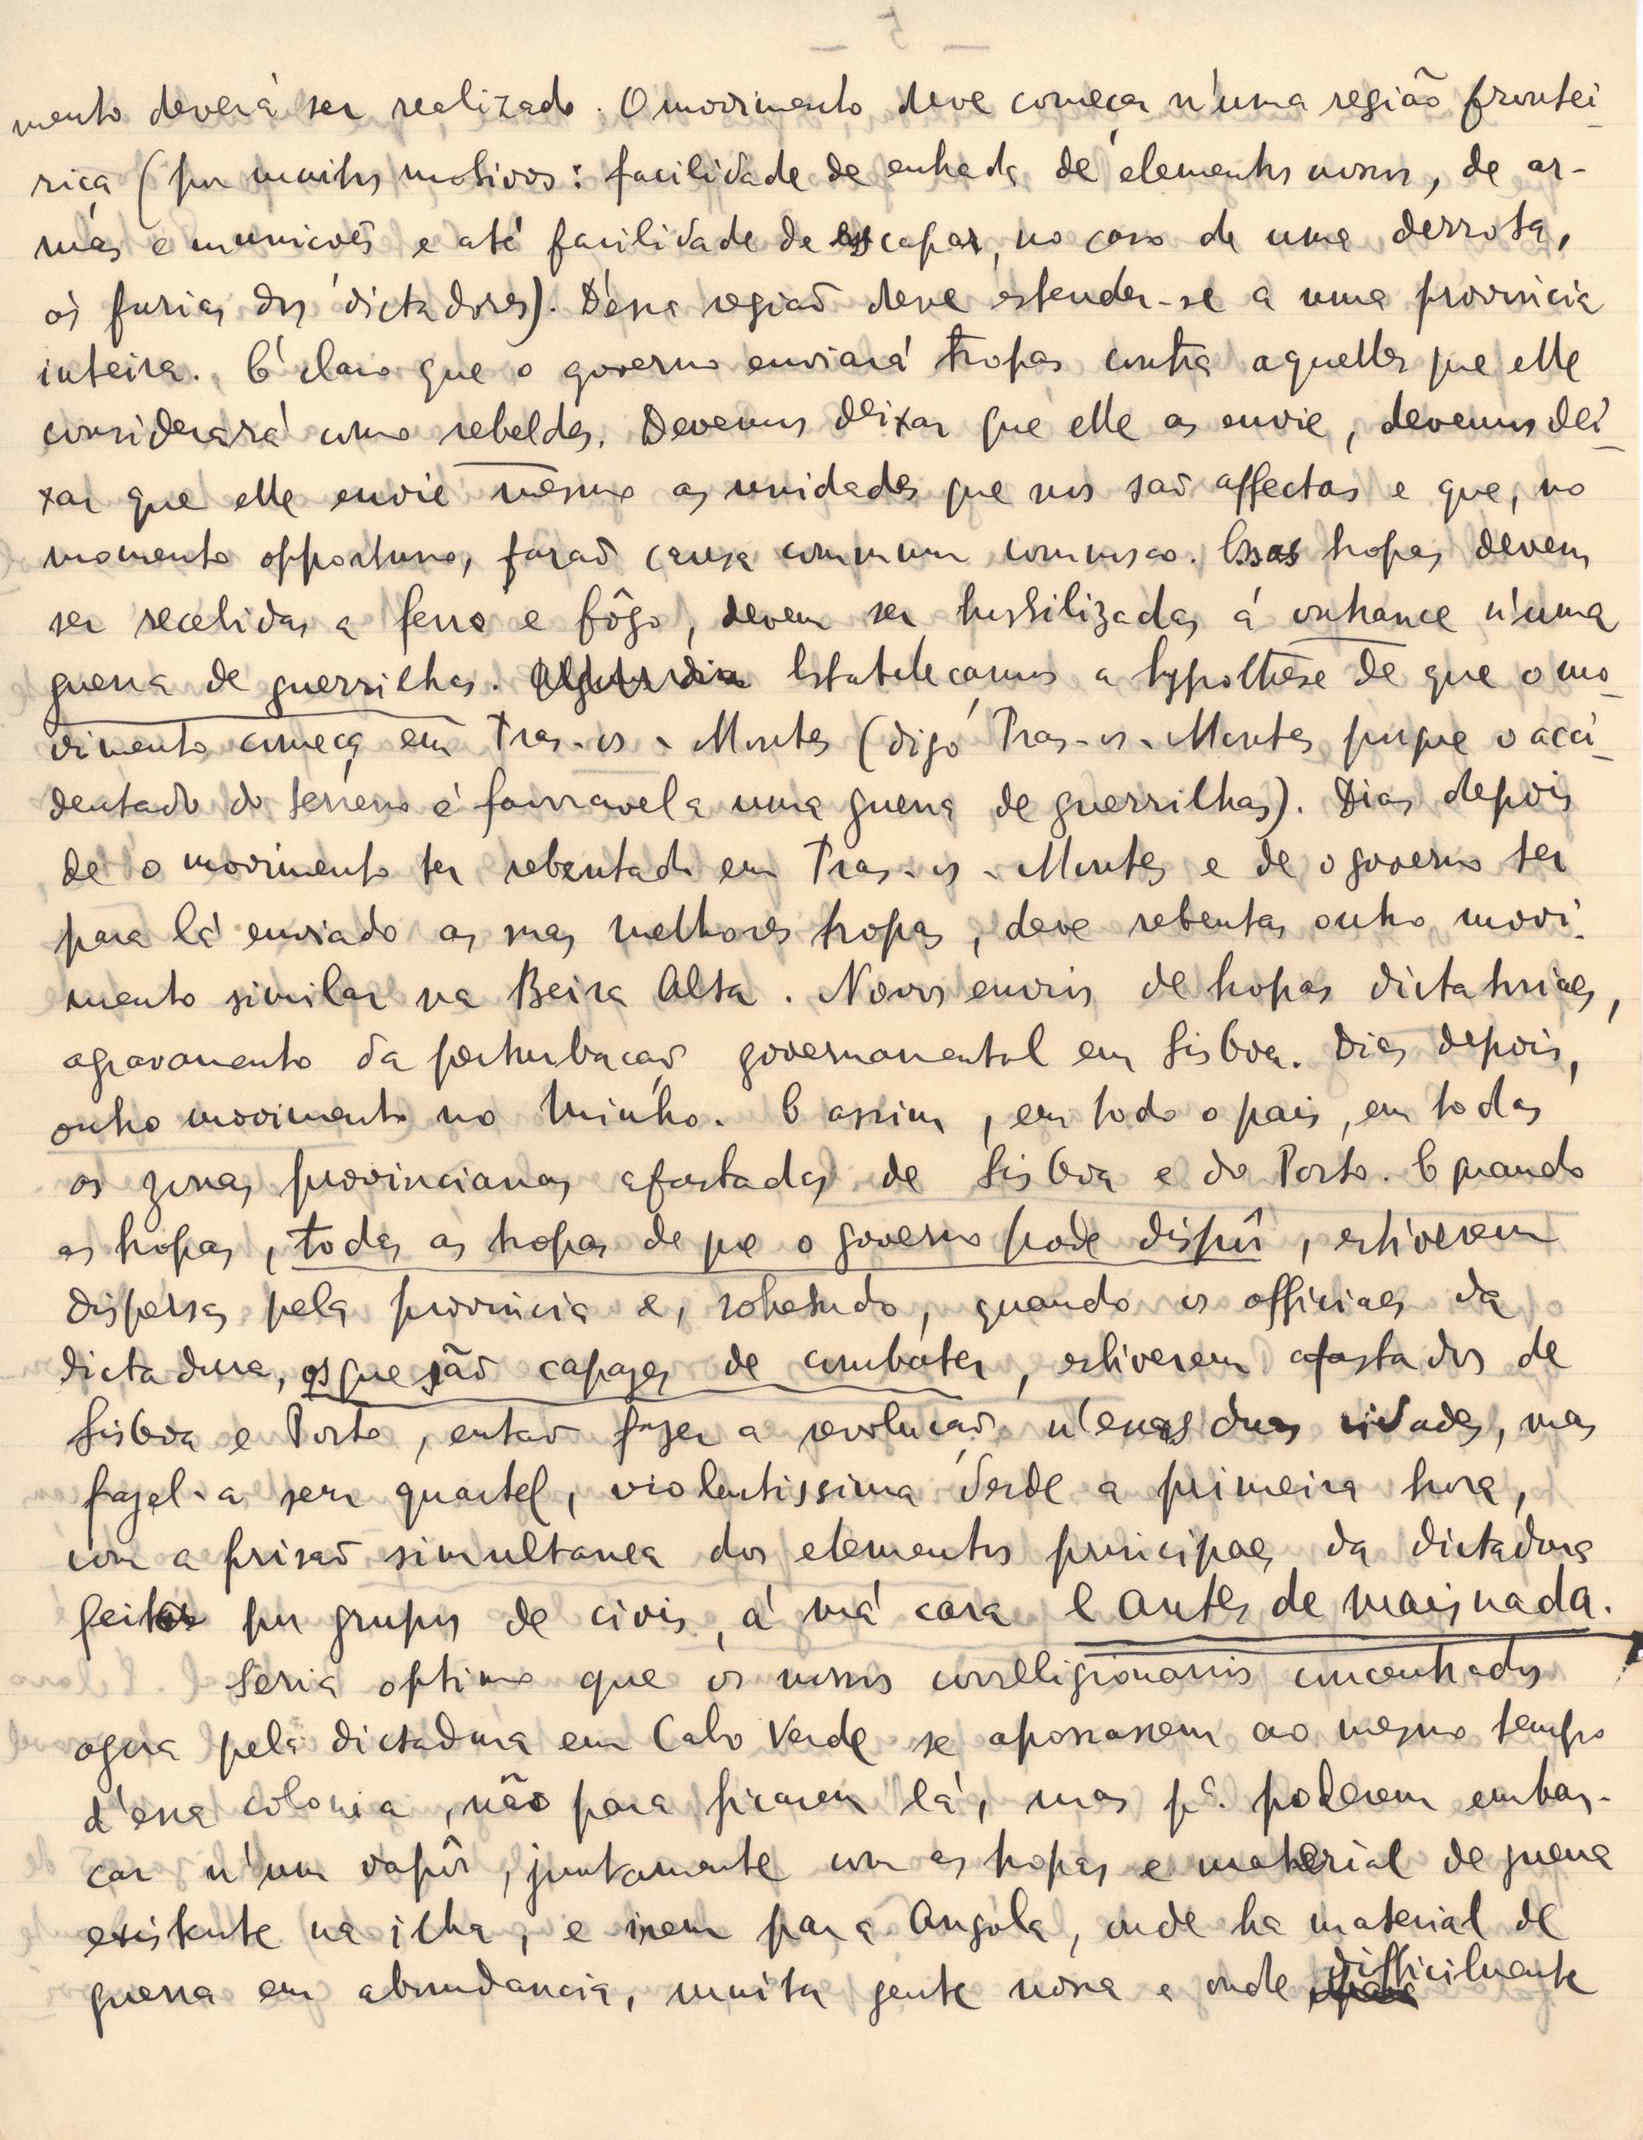 mento deverá ser realizado. O movimento deve começar n'uma região frontei-
riça (por muitos motivos: facilidade de entrada de elementos nossos, de ar-
mas e munições e até facilidade de escapar, no caso de uma derrota,
ás furias dos dictadores). D'essa região deve estender-se a uma provincia
inteira. É claro que o governo enviará tropas contra aquelles que elle
considerará como rebeldes. Devemos deixar que elle as envie, devemos dei-
xar que elle envie mesmo as unidades que nos são affectas e que, no
momento opportuno, farão causa commum comnosco. Essas tropas devem
ser recebidas a ferro e fôgo, devem ser hostilizadas á outrance n'uma
guerra de guerrilhas. Estabeleçamos a hypothese de que o mo-
vimento começa em Tras-os-Montes (digo Tras-os-Montes porque o acci-
dentado do terreno é favoravel a uma guerra de guerrilhas). Dias depois
de o movimento ter rebentado em Tras-os-Montes e de o governo ter
para lá enviado as suas melhores tropas, deve rebentar outro movi-
mento similar na Beira Alta. Novos envios de tropas dictatoriaes,
agravamento da perturbação governamental em Lisboa. Dias depois,
outro movimento no Minho. E assim, em todo o pais, em todas
as zonas provincianas afastadas de Lisboa e do Porto. E quando
as tropas, todas as tropas de que o governo póde dispôr, estiverem
dispersas pela provincia e, sobretudo, quando os officiaes da
dictadura, os que são capazes de combater, estiverem afastados de
Lisboa e Porto, então fazer a revolução n'essas duas cidades, mas
fazel-a sem quartel, violentissima desde a primeira hora,
com a prisão simultanea dos elementos principaes da dictadura
feitas por grupos de civis, á má cara e antes de mais nada.
Seria optimo que os nossos correligionarios concentrados
agora pela dictadura em Cabo Verde se apossassem ao mesmo tempo
d'essa colonia, não para ficarem lá, mas pª. poderem embar-
car n'um vapôr, juntamente com as tropas e material de guerra
existente na ilha, e irem para Angola, onde ha material de
guerra em abundancia, muita gente nossa e onde difficilmente